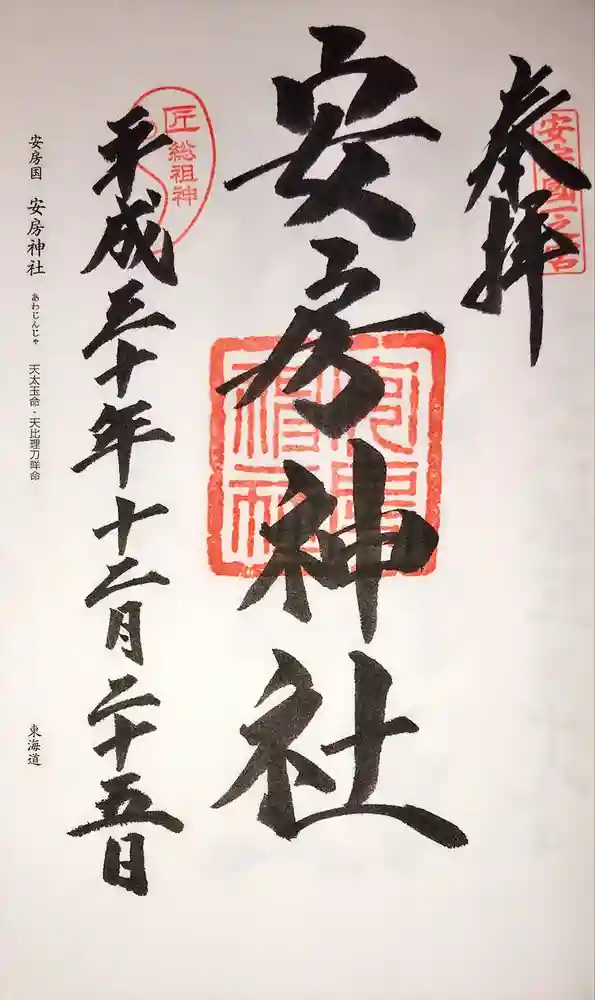 奉拝
安房國一之宮
安房神社
安房神社
平成三十年十二月二十五日
匠
総祖神
安房国 安房神社 あわじんじゃ 天太玉命・天比理刀咩命 東海道